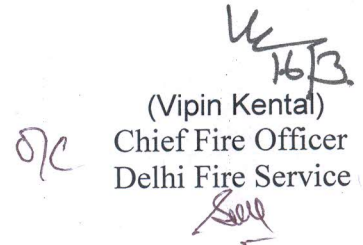 16/3.
(Vipin Kental)
O/C Chief Fire Officer
Delhi Fire Service